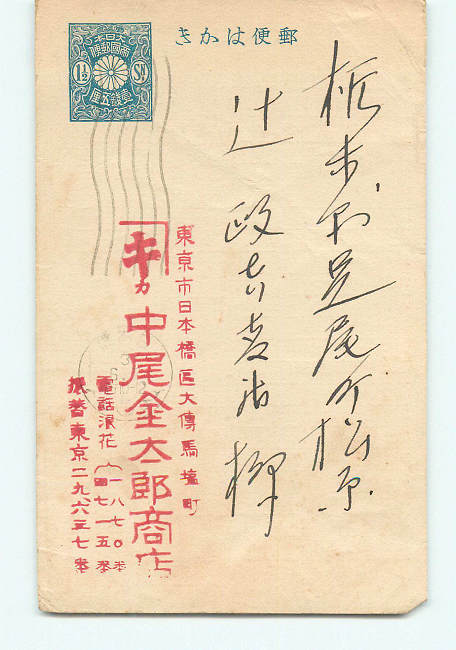 郵便はかき
大日本
帝國郵便
1½ Sn
壹錢五厘
栃木 足尾町松原
辻 政
東京市日本橋區大傳馬塩町
キカ 中尾金太郎商店
電話浪花
一八七〇番
四七一五番
振替東京二九六三七番